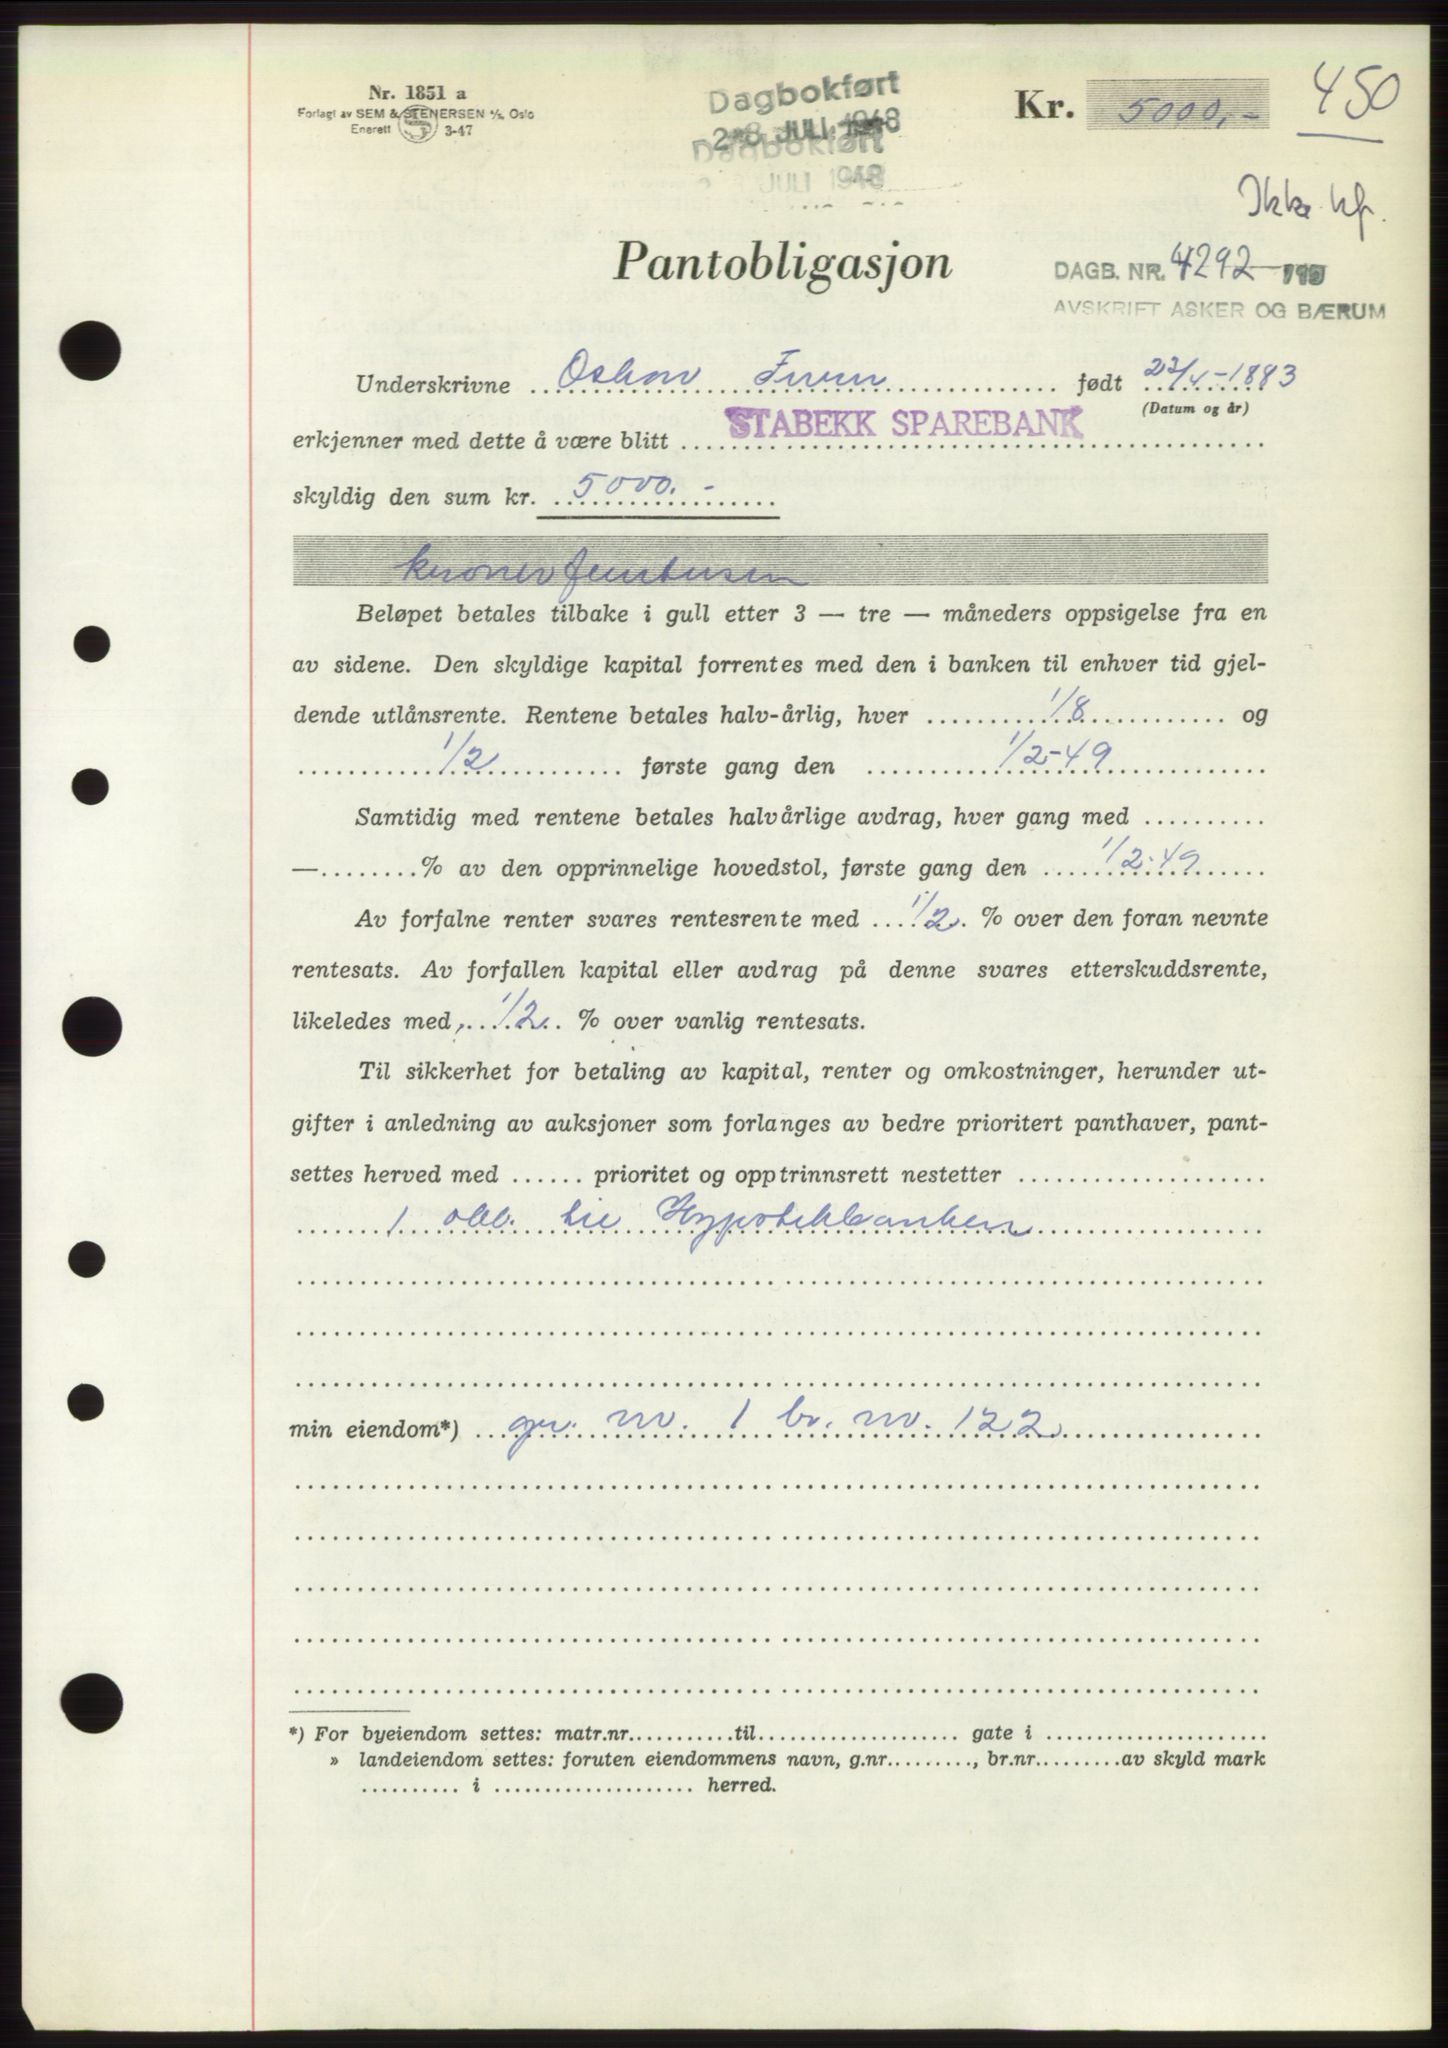 Nr. 1851 a
Forlagt av SEM & STENERSEN A/S, Oslo
Enerett S 3-47
Dagbokført
28 JULI 1948
Dagbokført
JULI 1948
Kr. 5000,-
450
Ikke kf.
Pantobligasjon
DAGB. NR. 4292
AVSKRIFT ASKER OG BÆRUM
Underskrivne Oskar født 22/4-1883
(Datum og år)
STABEKK SPAREBANK
erkjenner med dette å være blitt
skyldig den sum kr. 5000.-
kroner femtusen
Beløpet betales tilbake i gull etter 3 — tre — måneders oppsigelse fra en
av sidene. Den skyldige kapital forrentes med den i banken til enhver tid gjel-
dende utlånsrente. Rentene betales halv-årlig, hver 1/8 og
1/2 første gang den 1/2-49
Samtidig med rentene betales halvårlige avdrag, hver gang med ..........
—........% av den opprinnelige hovedstol, første gang den 1/2-49
Av forfalne renter svares rentesrente med 1/2 % over den foran nevnte
rentesats. Av forfallen kapital eller avdrag på denne svares etterskuddsrente,
likeledes med 1/2 % over vanlig rentesats.
Til sikkerhet for betaling av kapital, renter og omkostninger, herunder ut-
gifter i anledning av auksjoner som forlanges av bedre prioritert panthaver, pant-
settes herved med ...... prioritet og opptrinnsrett nestetter ....................
1 obl. til Hypotekbanken
min eiendom*) gr. nr. 1 br. nr. 122
*) For byeiendom settes: matr.nr...........til.................... gate i ......................
» landeiendom settes: foruten eiendommens navn, g.nr........., br.nr.........av skyld mark
.......... i .................... herred.